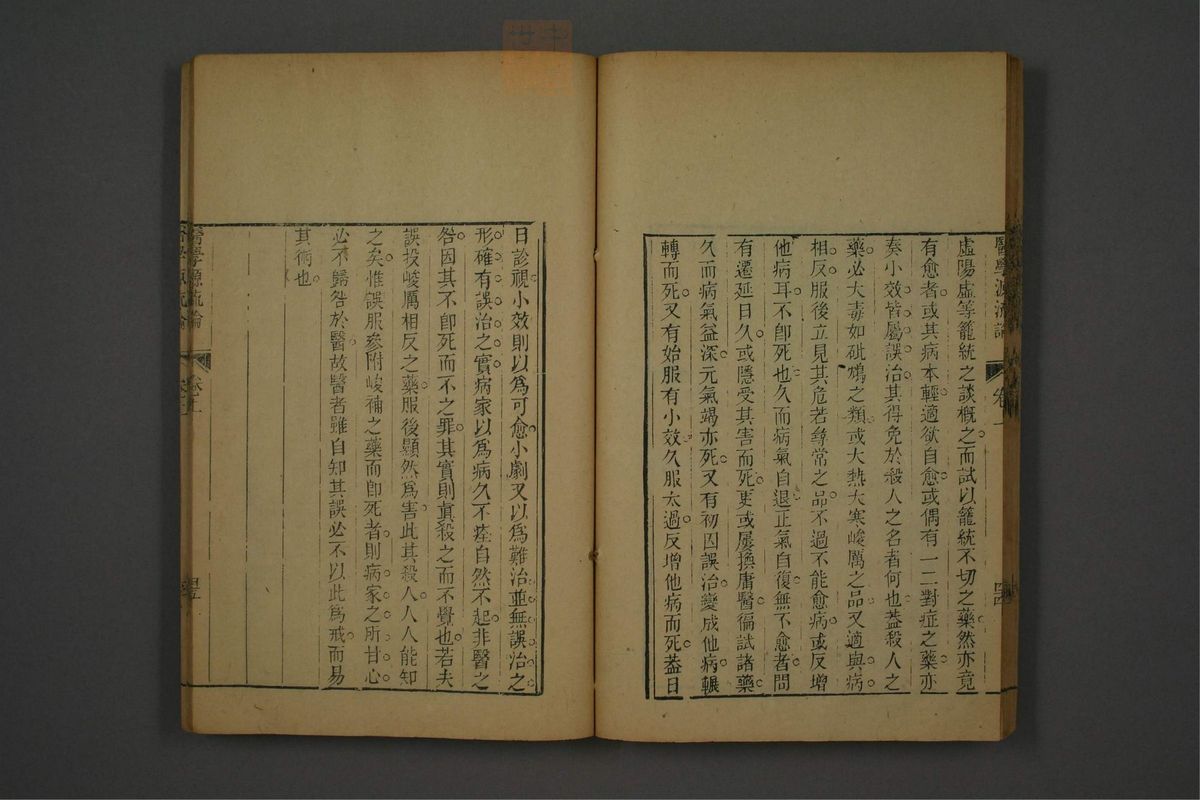 醫學源流論 卷一
虛陽虛等籠統之談概之而試以籠統不切之藥然亦竟
有愈者或其病本輕適欲自愈或偶有一二對症之藥亦
奏小效皆屬誤治其得免於殺人之名者何也蓋殺人之
藥必大毒如砒鴆之類或大熱大寒峻厲之品又適與病
相反服後立見其危若尋常之品不過不能愈病或反增
他病耳不卽死也久而病氣自退正氣自復無不愈者間
有遷延日久或隱受其害而死更或屢換庸醫徧試諸藥
久而病氣益深元氣竭亦死又有初因誤治變成他病輾
轉而死又有始服有小效久服太過反增他病而死蓋日
日診視小效則以爲可愈小劇又以爲難治並無誤治之
形確有誤治之實病家以爲病久不痊自然不起非醫之
咎因其不卽死而不之罪其實則眞殺之而不覺也若夫
誤投峻厲相反之藥服後顯然爲害此其殺人人人能知
之矣惟誤服參附峻補之藥而卽死者則病家之所甘心
必不歸咎於醫故醫者雖自知其誤必不以此爲戒而易
其術也
醫學源流論